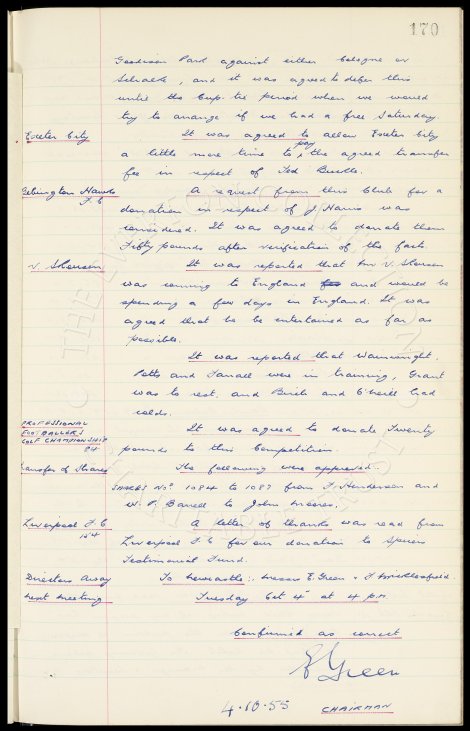 170
Goodison Park against either Cologne or
Schalke, and it was agreed to defer this
until the Cup-tie period when we would
try to arrange if we had a free Saturday.
Exeter City It was agreed to allow Exeter City
a little more time to pay the agreed transfer
fee in respect of Ted Buckle.
Bebington Hawks F.C. A request from this Club for a
donation in respect of J Harris was
considered. It was agreed to donate them
Fifty pounds after verification of the facts
It was reported that Mr V.
was coming to England and would be
spending a few days in England. It was
agreed that he be entertained as far as
possible.
It was reported that Wainwright,
Potts and Farrall were in training, Grant
was to rest, and Birch and O'Neill had
colds.
PROFESSIONAL
FOOTBALLERS
GOLF CHAMPIONSHIP
It was agreed to donate Twenty
pounds to this Competition.
Transfer of Shares The following were approved.
SHARES Nos. 1084 to 1087 from J. Henderson and
W. R. Barrell to John Moores.
Liverpool F.C. A letter of thanks was read from
Liverpool F.C for our donation to Spicers
Testimonial Fund.
Directors Away To Newcastle: Messrs E. Green & F. Micklesfield
Next Meeting Tuesday Oct 4th at 4 PM
Confirmed as correct
E Green
4.10.55 CHAIRMAN